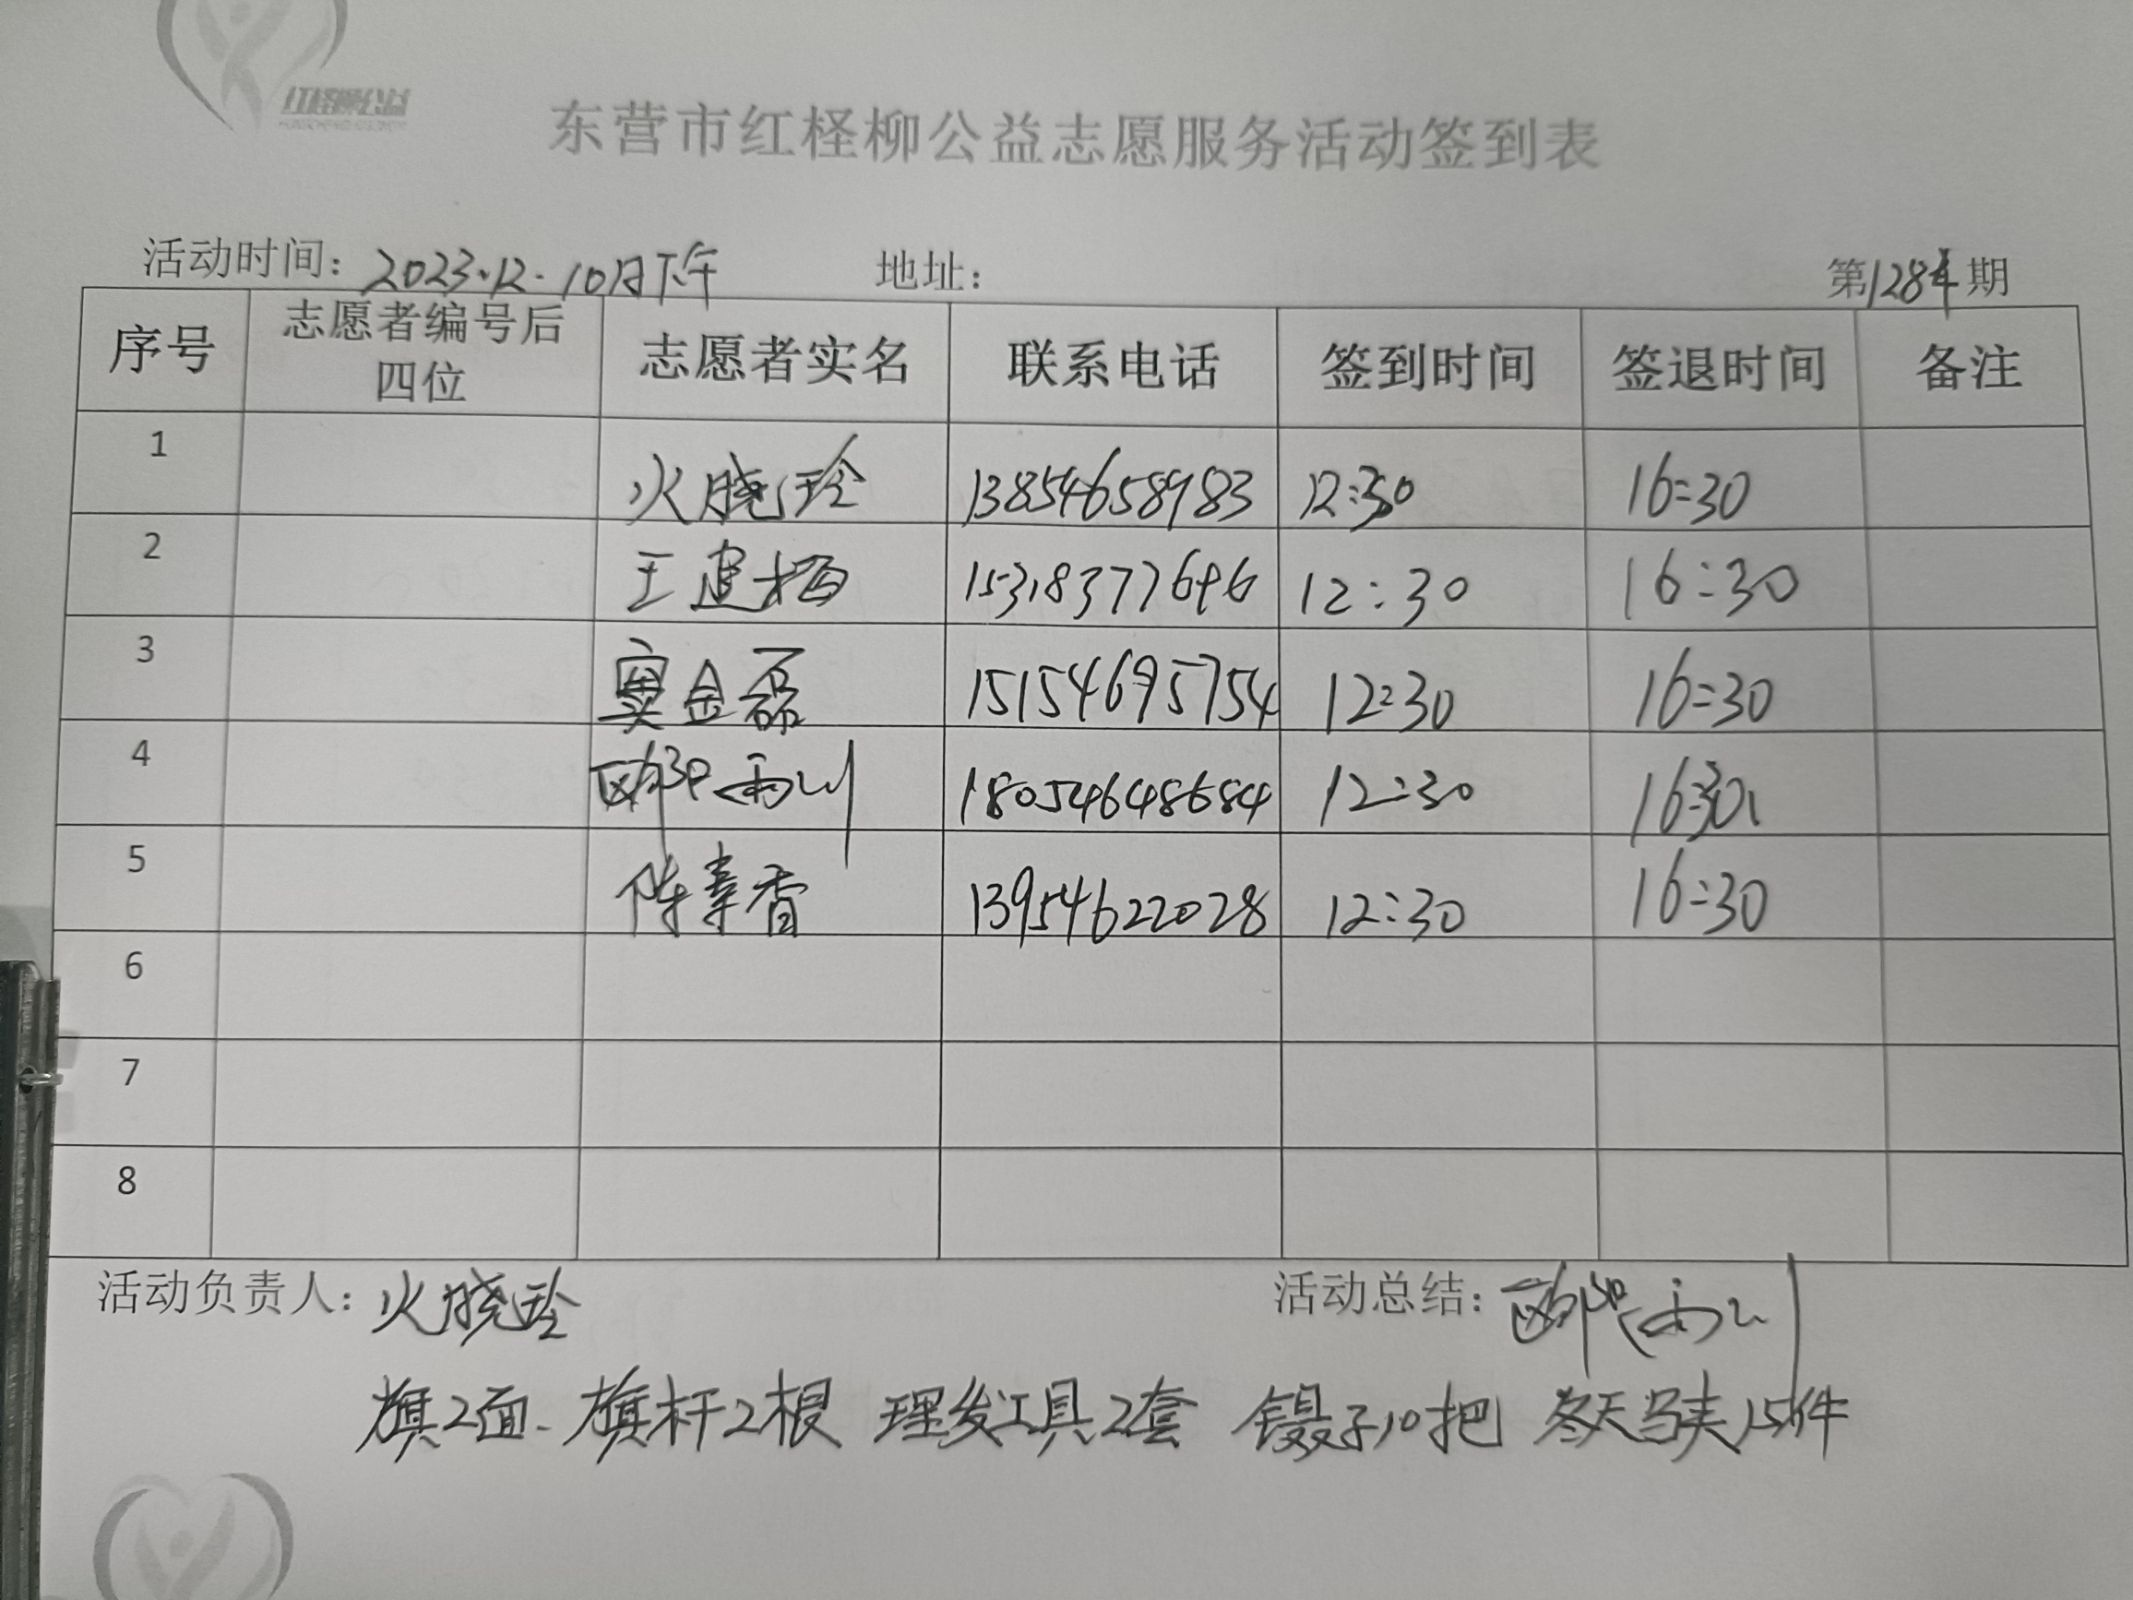 红柽柳公益
东营市红柽柳公益志愿服务活动签到表
活动时间：2023.12.10日下午 地址： 第128 期
序号 志愿者编号后四位 志愿者实名 联系电话 签到时间 签退时间 备注
1 火晓玲 13854658983 12:30 16:30
2 王建梅 15318377696 12:30 16:30
3 窦金磊 15154695754 12:30 16:30
4 欧阳雨川 18054648684 12:30 16:30
5 陈素香 13954622028 12:30 16:30
6
7
8
活动负责人：火晓玲 活动总结：欧阳雨川
旗2面、旗杆2根 理发工具2套 镊子10把 冬天马夹15件